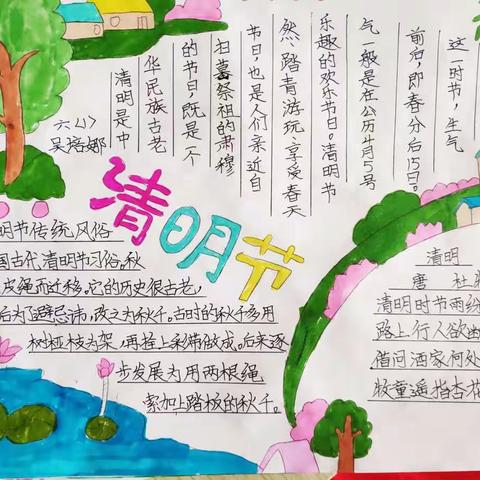 清明是中
华民族古老
的节日,既是一个
扫墓祭祖的肃穆
节日,也是人们亲近自
然、踏青游玩、享受春天
乐趣的欢乐节日。清明节
气一般是在公历4月5号
前后,即春分后15日。
这一时节,生气
六(1)
清明节
明节传统风俗
国古代清明节习俗。秋
皮绳而迁移。它的历史很古老,
后为了避忌讳,改之为秋千。古时的秋千多用
树桠枝为架,再拴上彩带做成。后来逐
步发展为用两根绳
索加上踏板的秋千。
清明
唐 杜
清明时节雨纷
路上行人欲断
借问酒家何处
牧童遥指杏花